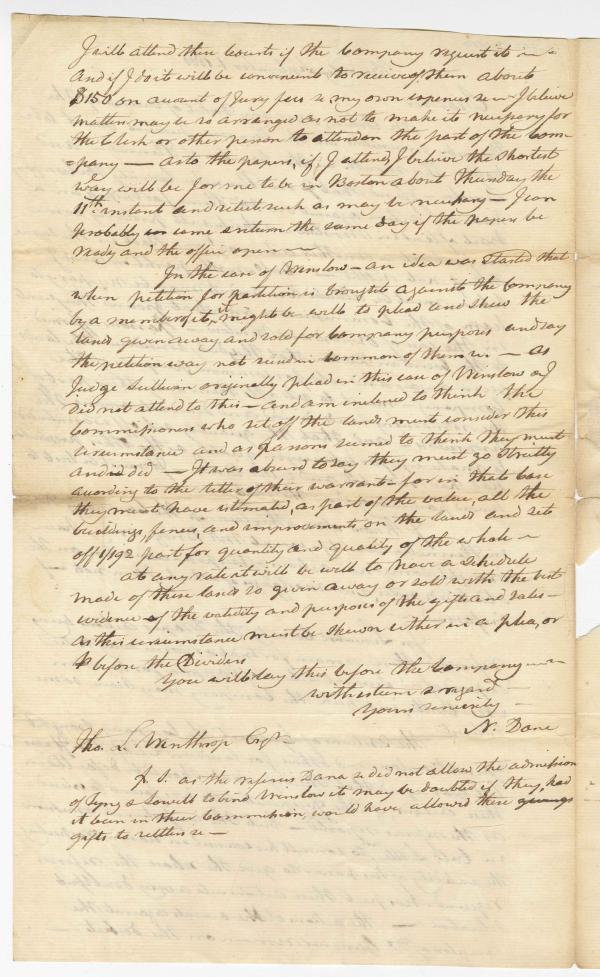 I will attend these Courts if the Company request it —
And if I do it will be convenient to receive of them about
$150 on account of Jury fees & my own expenses &c — I believe
matters may be so arranged as not to make it necessary for
the Clerk or other person to attend on the part of the Com-
=pany — as to the papers, if I attend, I believe the shortest
way will be for me to be in Boston about Thursday the
11th instant and select such as may be necessary — I can
probably come & return the same day if the papers be
ready and the office open —
In the case of Winslow — an idea was started that
when petition for partition is brought against the Company
by a member of it, it might be well to plead and shew the
lands given away and sold for Company purposes and say
the petitioner was not seized in common of them &c. — as
Judge Sullivan originally plead in this case of Winslow &
did not attend to this — and am inclined to think the
Commissioners who set off the lands must consider this
circumstance and as Parsons seemed to think they must
and did — It was absurd to say they must go strictly
according to the letter of their warrant — for in that case
they must have estimated, as part of the value, all the
buildings, fences, and improvements on the lands and set
off 1/192 part for quantity and quality of the whole —
at any rate it will be well to have a schedule
made of these lands so given away or sold with the best
evidence of the validity and purposes of the gifts and sales —
as this circumstance must be shewn either in a plea, or
before the Dividers
You will lay this before the Company —
with esteem & regard
Yours sincerely —
N. Dane
Tho. L. Winthrop Esqr.
P. S. as the referees Dana &c did not allow the admission
of Tyng & Lowell to bind Winslow it may be doubted if they, had
it been in their Commission, would have allowed these
gifts to settlers &c —